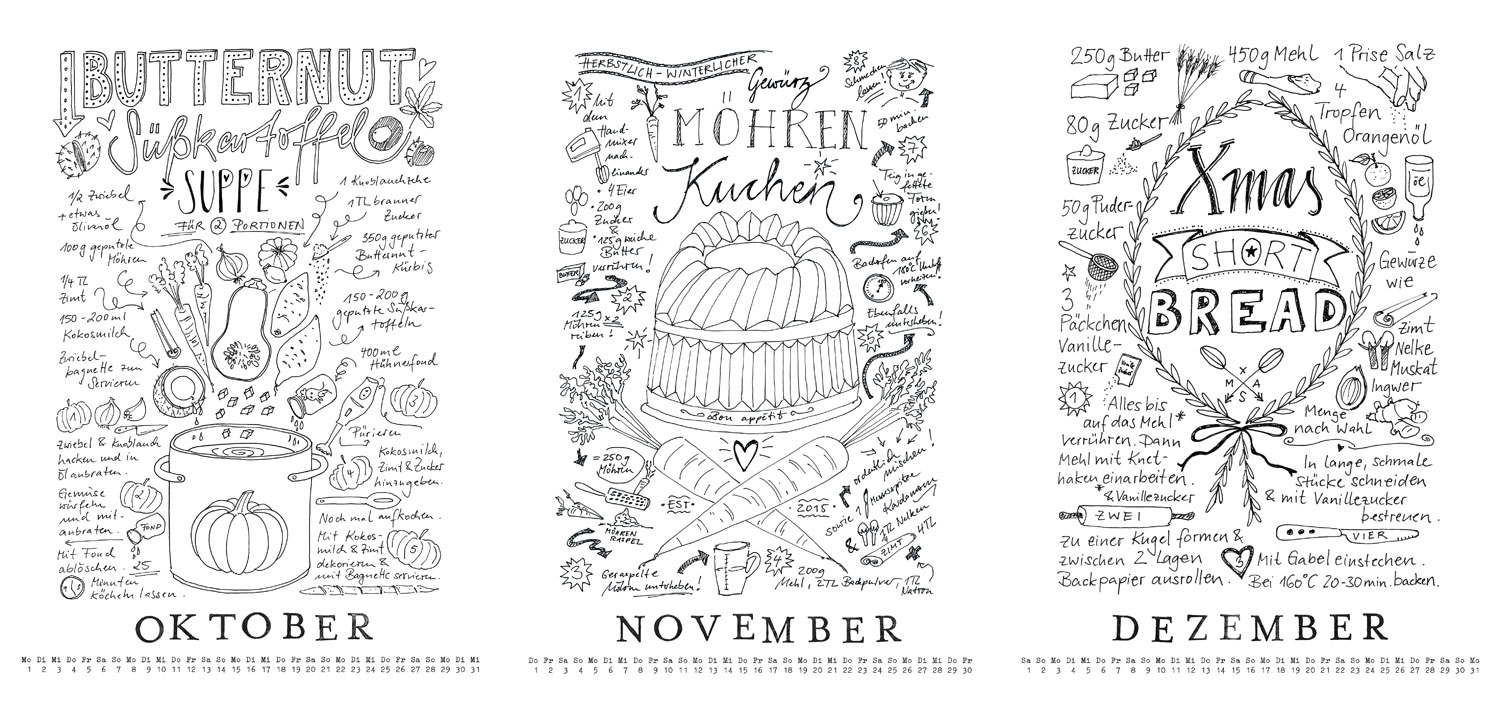 BUTTERNUT
Süßkartoffel
SUPPE
FÜR 2 PORTIONEN
1/2 Zwiebel
+ etwas
Olivenöl
100g geputzte
Möhren
1/4 TL
Zimt
150-200ml
Kokosmilch
Zwiebel-
baguette zum
Servieren
1 Knoblauchzehe
1TL brauner
Zucker
350g geputzter
Butternut-
Kürbis
150-200g
geputzte Süßkar-
toffeln
400ml
Hühnerfond
1
Zwiebel & Knoblauch
hacken und in
Öl anbraten.
2
Gemüse
würfeln
und mit-
anbraten.
FOND
Mit Fond
ablöschen. 25
Minuten
köcheln lassen.
3
Pürieren
4
Kokosmilch,
Zimt & Zucker
hinzugeben.
Noch mal aufkochen.
5
Mit Kokos-
milch & Zimt
dekorieren &
mit Baguette servieren.
OKTOBER
Mo Di Mi Do Fr Sa So Mo Di Mi Do Fr Sa So Mo Di Mi Do Fr Sa So Mo Di Mi Do Fr Sa So Mo Di Mi
1 2 3 4 5 6 7 8 9 10 11 12 13 14 15 16 17 18 19 20 21 22 23 24 25 26 27 28 29 30 31
HERBSTLICH-WINTERLICHER
Gewürz
MÖHREN
Kuchen
1
Mit
dem
Hand-
mixer
nach-
einander
• 4 Eier
• 200g
Zucker
&
• 125g weiche
Butter
verrühren!
ZUCKER
BUTTER
2
125g x2
Möhren
reiben!
= 250g
Möhren
MÖHREN
RASPEL
3
Geraspelte
Möhren unterheben!
4
200g
Mehl, 2TL Backpulver, 1TL
Natron
4TL
ZIMT
&
1TL Nelken
sowie 1
Kardamom
ordentlich
mischen!
5
Ebenfalls
unterheben!
Backofen auf
160°C Umluft
vorheizen!
6
Teig in ge-
fettete
Form
gießen!
7
50 min.
backen
8
Schmecken
lassen!
Bon appétit
EST.
2015
NOVEMBER
Do Fr Sa So Mo Di Mi Do Fr Sa So Mo Di Mi Do Fr Sa So Mo Di Mi Do Fr Sa So Mo Di Mi Do Fr
1 2 3 4 5 6 7 8 9 10 11 12 13 14 15 16 17 18 19 20 21 22 23 24 25 26 27 28 29 30
250g Butter
450g Mehl
1 Prise Salz
80g Zucker
ZUCKER
4
Tropfen
Orangenöl
öl
50g Puder-
zucker
3
Päckchen
Vanille-
zucker
Xmas
SHORT
BREAD
X
M A
S
Gewürze
wie
Zimt
Nelke
Muskat
Ingwer
Menge
nach Wahl
1
Alles bis
auf das Mehl*
verrühren. Dann
Mehl mit Knet-
haken einarbeiten.
*& Vanillezucker
ZWEI
zu einer Kugel formen &
zwischen 2 Lagen
Backpapier ausrollen.
In lange, schmale
Stücke schneiden
& mit Vanillezucker
bestreuen.
VIER
3
Mit Gabel einstechen.
Bei 160°C 20-30min. backen.
DEZEMBER
Sa So Mo Di Mi Do Fr Sa So Mo Di Mi Do Fr Sa So Mo Di Mi Do Fr Sa So Mo Di Mi Do Fr Sa So Mo
1 2 3 4 5 6 7 8 9 10 11 12 13 14 15 16 17 18 19 20 21 22 23 24 25 26 27 28 29 30 31